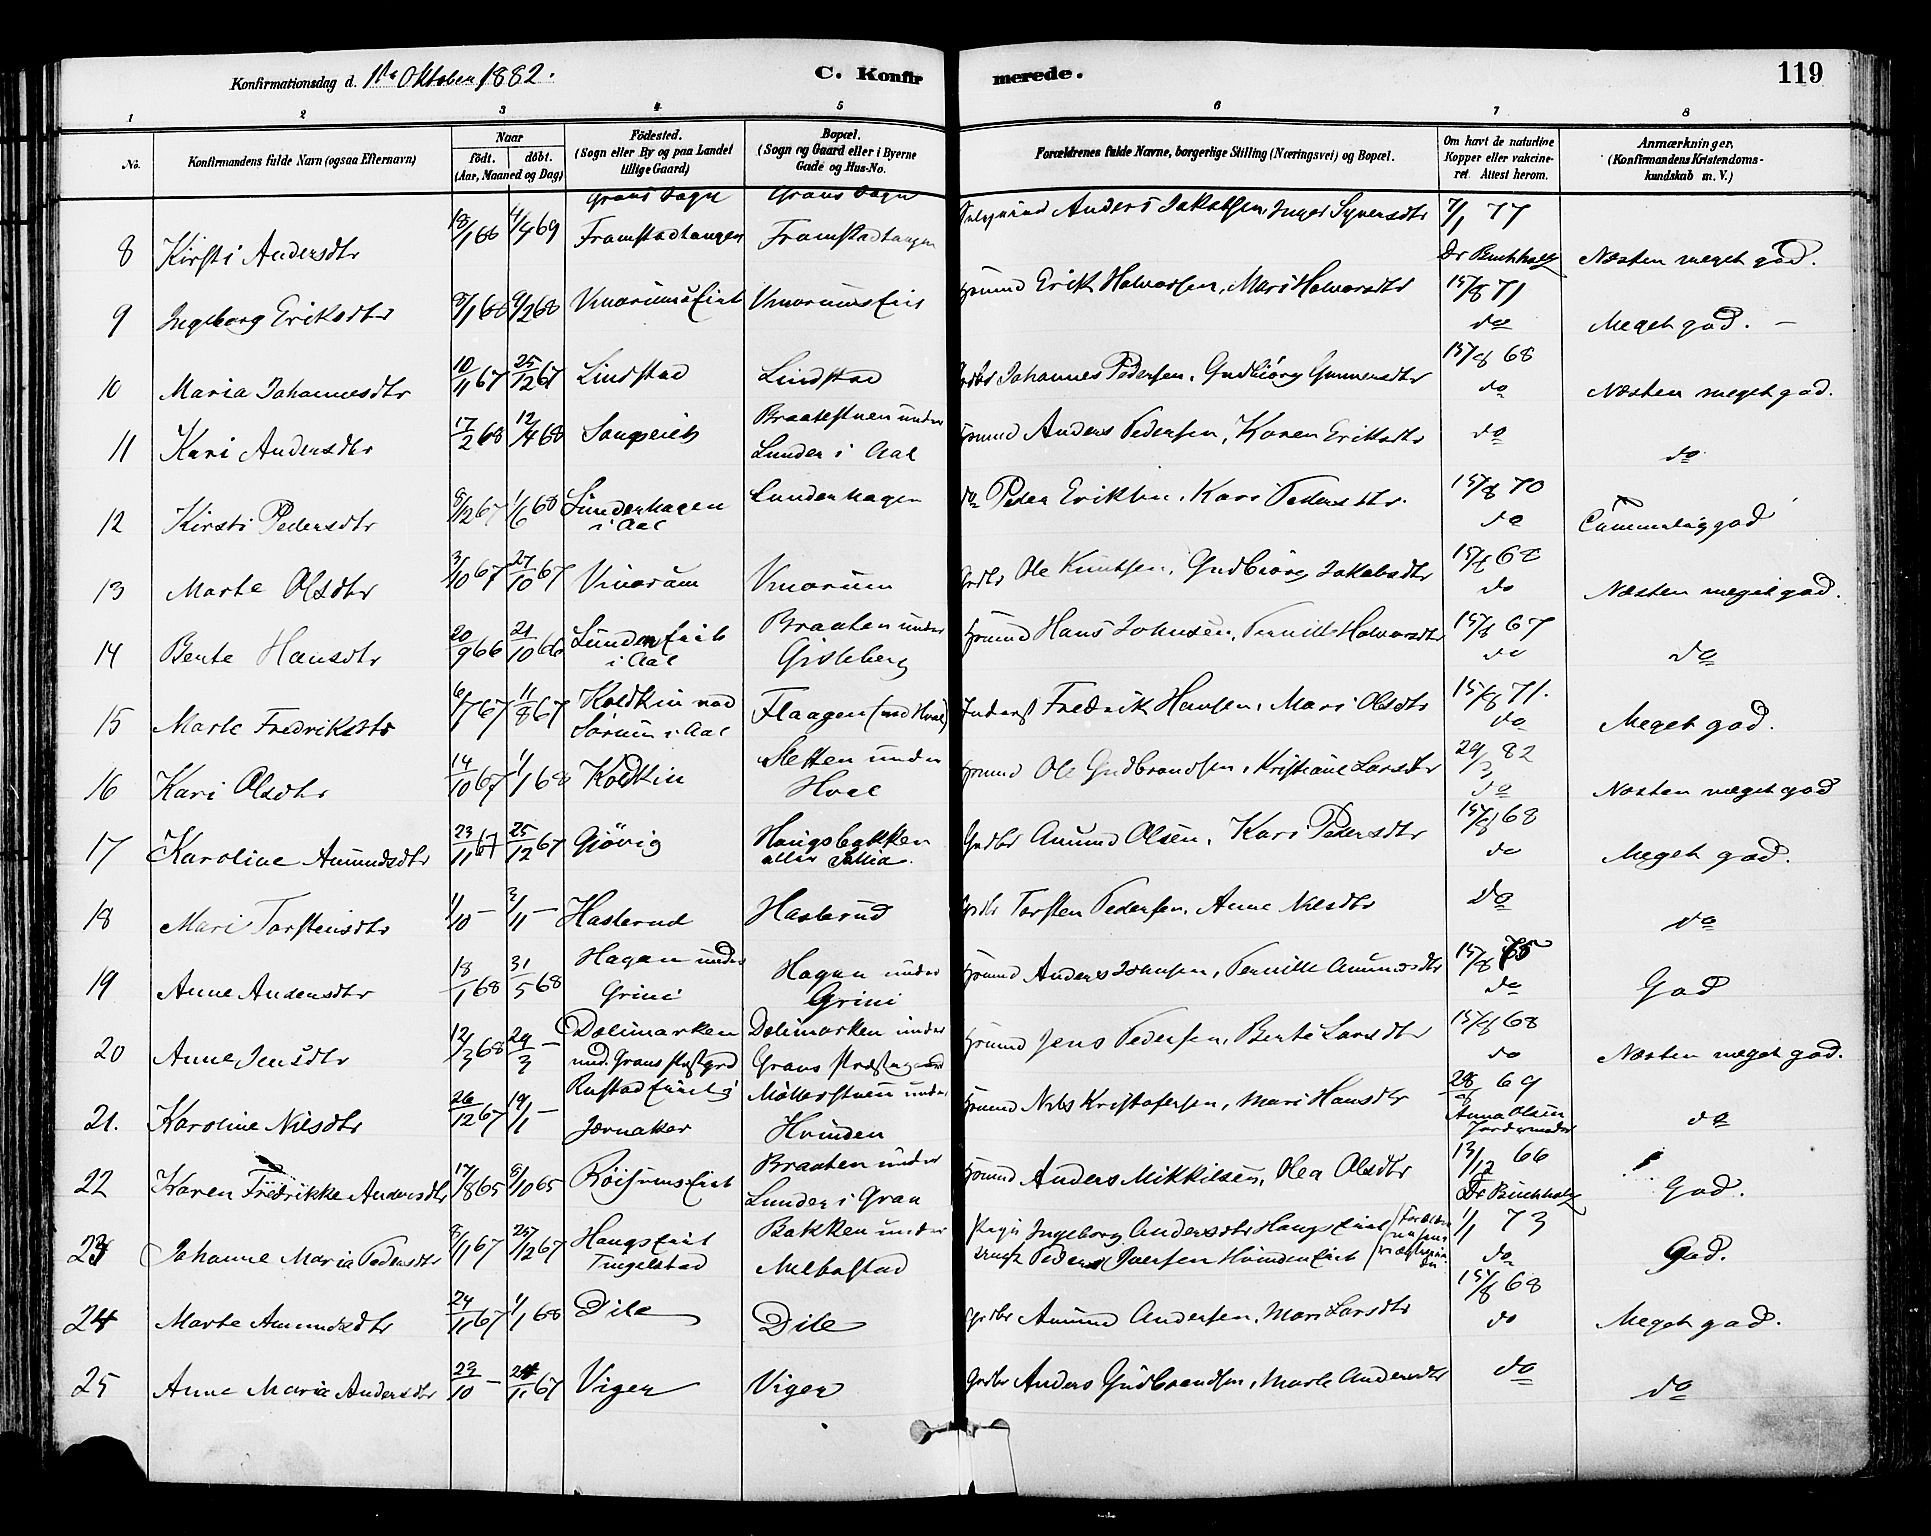 Konfirmationsdag d. 1ste Oktober 1882.
C. Konfir merede.
119
1 2 3 4 5 6 7 8
No.
Konfirmandens fulde Navn (ogsaa Efternavn)
Naar
født. døbt.
(Aar, Maaned og Dag)
Fødested.
(Sogn eller By og paa Landet
tillige Gaard)
Bopæl.
(Sogn og Gaard eller i Byerne
Gade og Hus-No.
Forældrenes fulde Navne, borgerlige Stilling (Næringsvei) og Bopæl.
Om havt de naturline
Kopper eller vakcine-
ret. Attest herom.
Anmærkninger,
(Konfirmandens Kristendoms-
kundskab m. V.)
Grans Sogn Grans Sogn
8 Kirsti Andersdtr 18/1 66 4/4 69 Framstadtangen Framstadtangen Anders Jakobsen, Inger Syversdtr 7/1 77
Dr Buchholz Næsten meget god.
9 Ingeborg Eriksdtr 8/1 68 9/2 68 Vinorumseiet Vinorumseiet Grmd Erik Halvorsen, Mari Halvorsdtr 15/8 71
do Meget god. –
10 Maria Johannesdtr 10/11 67 25/12 67 Lindstad Lindstad Grdbr Johannes Pedersen, Gudbiörg Gunnersdtr 15/8 68
do Næsten meget god.
11 Kari Andersdtr 17/2 68 12/4 68 Braatestuen under
Lunder i Aal Grmd Anders Pedersen, Karen Eriksdtr do do
12 Kirsti Pedersdtr 8/12 67 1/6 68 Lunderhagen
i Aal Lunderhagen do Peder Eriksen, Kari Pedersdtr. 15/8 70
do Temmelig god
13 Marte Olsdtr 3/10 67 27/10 67 Vinorum Vinorum Grdbr Ole Knutsen, Gudbiörg Jakobsdtr 15/8 68
do Næsten meget god.
14 Bente Hansdtr 20/9 66 21/10 66 Lundereiet
i Aal Braaten under
Gisleberg Grmd Hans Johnsen, Pernille Halvorsdtr 15/8 67
do do
15 Marte Fredriksdtr 6/7 67 11/8 67 Koldkin ved
Sørum i Aal Flaagen (ved Hval) Inderst Fredrik Hansen, Mari Olsdtr 15/8 71.
do Meget god.
16 Kari Olsdtr 14/10 67 1/1 68 Kodkin Sletten under
Hval Grmd Ole Gudbrandsen, Kristiane Larsdtr 29/3 82
do Næsten meget god
17 Karoline Amundsdtr 23/11 67 25/12 67 Gjövig Haugsbakken
eller Grdbr Amund Olsen, Kari Pedersdtr 15/8 68
do Meget god.
18 Mari Torstensdtr 1/10 – 3/11 – Haslerud Haslerud Grdbr Torsten Pedersen, Anne Nilsdtr Do do
19 Anne Andersdtr 18/1 68 31/5 68 Hagen under
Grini Hagen under
Grini Grmd Anders Johnsen, Pernille Amundsdtr 15/8 75
do God
20 Anne Jensdtr 12/3 68 29/3 – Dælimarken
und. Grans præstgrd Dælimarken under
Grans Præstegaard Grmd Jens Pedersen, Berte Larsdtr 15/8 68
do Næsten meget god.
21. Karoline Nilsdtr 26/12 67 19/1 – Rustadeiet i
Jævnaker Möllerstuen under
Hvinden Grmd Nils Kristofersen, Mari Hansdtr 28/8 69
Anna Olsen
Jordemoder do
22 Karen Fredrikke Andersdtr 17/8 65 8/10 65 Röisumseiet Braaten under
Lunder i Gran Grmd Anders Mikkelsen, Olea Olsdtr 13/12 66
Dr Buchholz God.
23 Johanne Maria Pedersdtr 8/11 67 25/12 67 Haugseiet
Tingelstad Bakken under
Melbostad Pige Ingeborg Andersdtr Haugseiet
Peder Iversen Hvindeneiet 1/1 73
do God.
24 Marte Amundsdtr 24/11 67 1/1 68 Dile Dile Grdbr Amund Andersen, Mari Larsdtr 15/8 68
do Meget god.
25 Anne Maria Andersdtr 23/10 – 24/11 67 Viger Viger Grdbr Anders Gudbrandsen, Marte Andersdtr do do